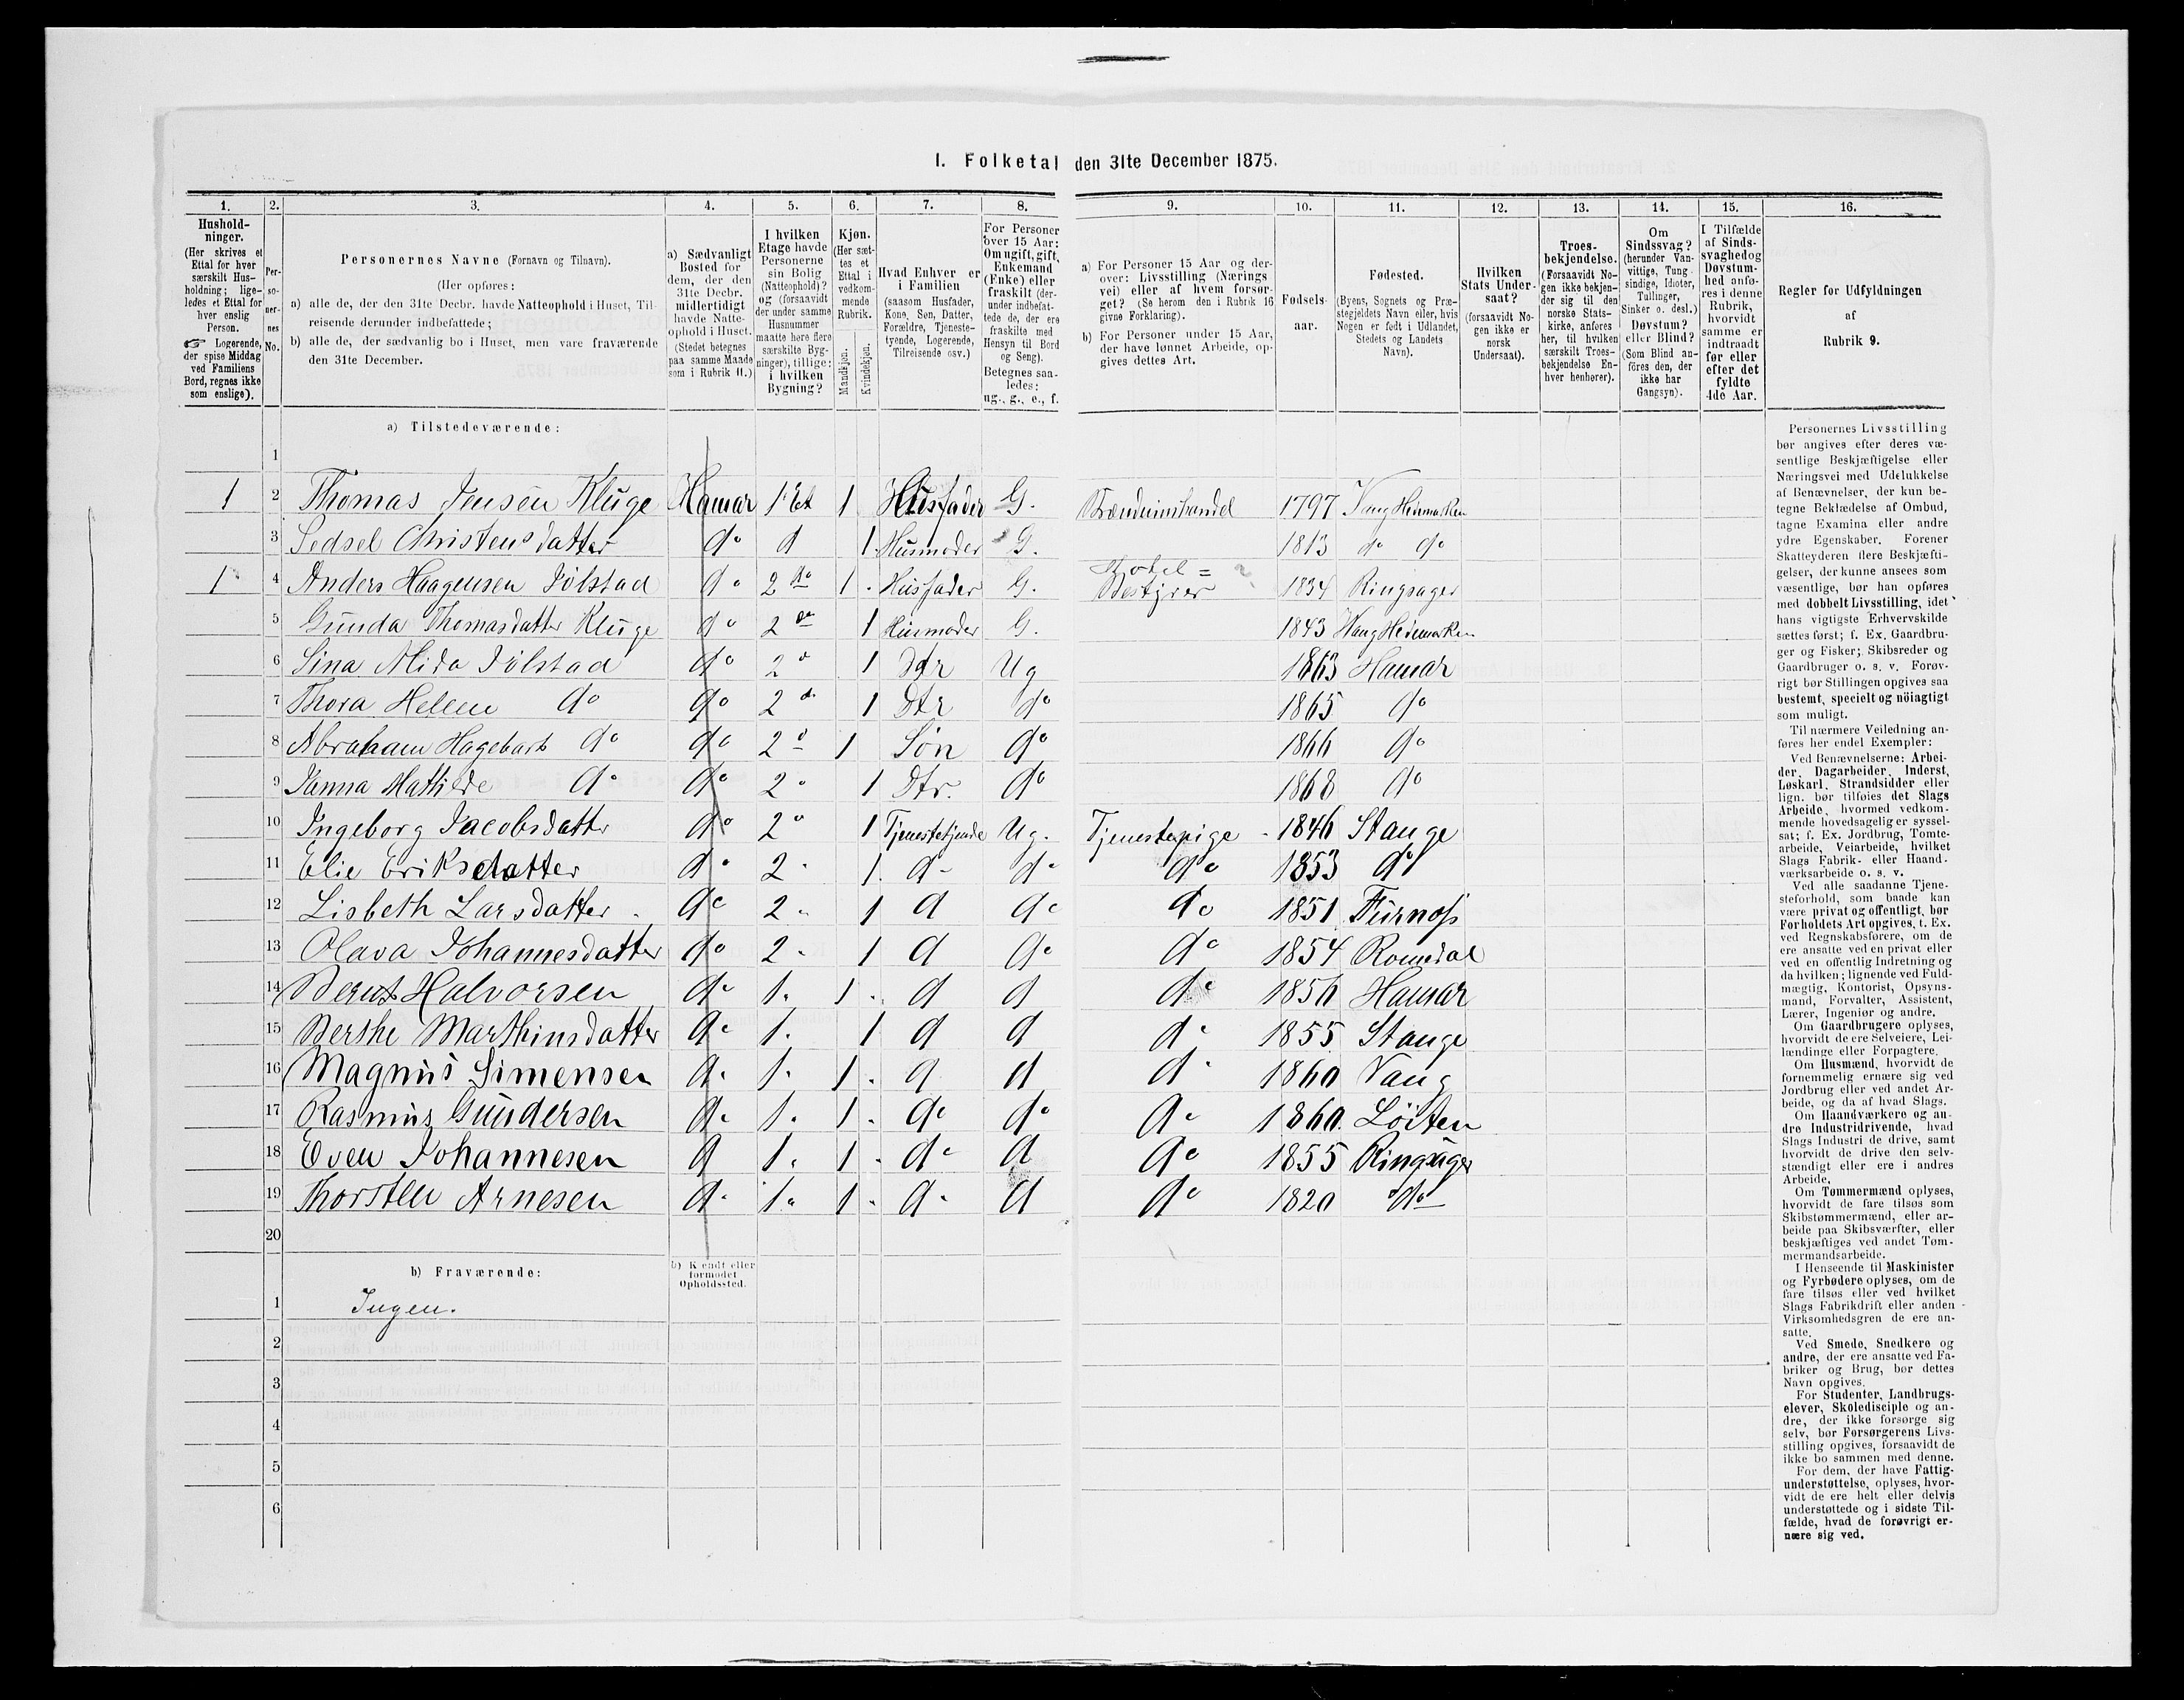 I. Folketal den 31te December 1875.
1. 2. 3. 4. 5. 6. 7. 8. 9. 10. 11. 12. 13. 14. 15. 16.
Hushold-
ninger.
(Her skrives et
Ettal for hver
særskilt Hus-
holdning; lige-
ledes et Ettal for
hver enslig
Person.
☞ Logerende,
der spise Middag
ved Familiens
Bord, regnes ikke
som enslige).
Per-
so-
ner-
nes
No.
Personernes Navne (Fornavn og Tilnavn).
(Her opføres:
a) alle de, der den 31te Decbr. havde Natteophold i Huset, Til-
reisende derunder indbefattede;
b) alle de, der sædvanlig bo i Huset, men vare fraværende
den 31te December.
a) Sædvanligt
Bosted for
dem, der den
31te Decbr.
midlertidigt
havde Natte-
ophold i Huset.
(Stedet betegnes
paa samme Maade
som i Rubrik 11.)
I hvilken
Etage havde
Personerne
sin Bolig
(Natteophold)?
og (forsaavidt
der under samme
Husnummer
maatte høre flere
særskilte Byg-
ninger), tillige:
i hvilken
Bygning?
Kjøn.
(Her sæt-
tes et
Ettal i
vedkom-
mende
Rubrik.
Mandkjøn.
Kvindekjøn.
Hvad Enhver er
i Familien
(saasom Husfader,
Kone, Søn, Datter,
Forældre, Tjeneste-
tyende, Logerende,
Tilreisende osv.)
For Personer
over 15 Aar:
Om ugift, gift,
Enkemand
(Enke) eller
fraskilt (der-
under indbefat-
tede de, der ere
fraskilte med
Hensyn til Bord
og Seng).
Betegnes saa-
ledes:
ug., g., e., f.
a) For Personer 15 Aar og der-
over: Livsstilling (Nærings
vei) eller af hvem forsør-
get? (Se herom den i Rubrik 16
givne Forklaring).
b) For Personer under 15 Aar,
der have lønnet Arbeide, op-
gives dettes Art.
Fødsels-
aar.
Fødested.
(Byens, Sognets og Præ-
stegjeldets Navn eller, hvis
Nogen er født i Udlandet,
Stedets og Landets
Navn).
Hvilken
Stats Under-
saat?
(forsaavidt No-
gen ikke er
norsk
Undersaat).
Troes-
bekjendelse.
(Forsaavidt No-
gen ikke bekjen-
der sig til den
norske Stats-
kirke, anføres
her, til hvilken
særskilt Troes-
bekjendelse En-
hver henhører).
Om
Sindssvag?
(herunder Van-
vittige, Tung-
sindige, Idioter,
Tullinger,
Sinker o. desl.)
Døvstum?
eller Blind?
(Som Blind an-
føres den, der
ikke har
Gangsyn).
I Tilfælde
af Sinds-
svaghed og
Døvstum-
hed anfø-
res i denne
Rubrik,
hvorvidt
samme er
indtraadt
før eller
efter det
fyldte
4de Aar.
Regler for Udfyldningen
af
Rubrik 9.
a) Tilstedeværende:
1
1 2 Thomas Jensen Kluge Hamar 1 Et 1 Husfader G. Brændeviinshandel 1797 Vang Hedmarken
3 Sedsel Christensdatter do d 1 Husmoder G. 1813 do do
1 4 Anders Haagensen Jølstad do 2 do 1 Husfader G. Hotel=Bestyrer 1834 Ringsager
5 Gunda Thomasdatter Kluge do 2 do 1 Husmoder G. 1843 Vang Hedemarken
6 Sina Alida Jølstad do 2 d 1 Dtr Ug 1863 Hamar
7 Thora Helene do do 2 d 1 Dtr do 1865 do
8 Abraham Hagebart do do 2 d 1 Søn do 1866 do
9 Janna Mathilde do do 2 " 1 Dtr. do 1868 do
10 Ingeborg Jacobsdatter do 2 " 1 Tjenestetjende Ug. Tjenestepige 1846 Stange
11 Elie Eriksdatter do 2 " 1 do do do 1853 do
12 Lisbeth Larsdatter do 2 " 1 d do do 1851 Furnoss
13 Olava Johannesdatter do 2 " 1 d do do 1854 Romedal
14 Bernt Halvorsen do 1 " 1 d d do 1856 Hamar
15 Berthe Marthinsdatter do 1 " 1 d d do 1855 Stange
16 Magnus Simensen do 1 " 1 d d do 1860 Vang
17 Rasmus Gundersen do 1 " 1 do do do 1860 Löiten
18 Even Johannesen d 1 " 1 do d do 1855 Ringsager
19 Thorsten Arnesen do 1 " 1 do d do 1820 do
20
b) Fraværende:
b) Kjendt eller
formodet
Opholdssted.
1 Ingen.
2
3
4
5
6
Personernes Livsstilling
bør angives efter deres væ-
sentlige Beskjæftigelse eller
Næringsvei med Udelukkelse
af Benævnelser, der kun be-
tegne Beklædelse af Ombud,
tagne Examina eller andre
ydre Egenskaber. Forener
Skatteyderen flere Beskjæfti-
gelser, der kunne ansees som
væsentlige, bør han opføres
med dobbelt Livsstilling, idet
hans vigtigste Erhvervskilde
sættes først; f. Ex. Gaardbru-
ger og Fisker; Skibsreder og
Gaardbruger o. s. v. Forøv-
rigt bør Stillingen opgives saa
bestemt, specielt og nöiagtigt
som muligt.
Til nærmere Veiledning an-
føres her endel Exempler:
Ved Benævnelserne: Arbei-
der, Dagarbeider, Inderst,
Løskarl, Strandsidder eller
lign. bør tilføies det Slags
Arbeide, hvormed vedkom-
mende hovedsagelig er syssel-
sat; f. Ex. Jordbrug, Tomte-
arbeide, Veiarbeide, hvilket
Slags Fabrik- eller Haand-
værksarbeide o. s. v.
Ved alle saadanne Tjene-
steforhold, som baade kan
være privat og offentligt, bør
Forholdets Art opgives, t. Ex.
ved Regnskabsførere, om de
ere ansatte ved en privat eller
ved en offentlig Indretning og
da hvilken; lignende ved Fuld-
mægtig, Kontorist, Opsyns-
mand, Forvalter, Assistent,
Lærer, Ingeniør og andre.
Om Gaardbrugere oplyses,
hvorvidt de ere Selveiere, Lei-
lændinge eller Forpagtere.
Om Husmænd, hvorvidt de
fornemmelig ernære sig ved
Jordbrug eller ved andet Ar-
beide, og da af hvad Slags.
Om Haandværkere og an-
dre Industridrivende, hvad
Slags Industri de drive, samt
hvorvidt de drive den selv-
stændigt eller ere i andres
Arbeide.
Om Tømmermænd oplyses,
hvorvidt de fare tilsøs som
Skibstømmermænd, eller ar-
beide paa Skibsværfter, eller
beskjæftiges ved andet Tøm-
mermandsarbeide.
I Henseende til Maskinister
og Fyrbødere oplyses, om de
fare tilsøs eller ved hvilket
Slags Fabrikdrift eller anden
Virksomhedsgren de ere an-
satte.
Ved Smede, Snedkere og
andre, der ere ansatte ved Fa-
briker og Brug, bør dettes
Navn opgives.
For Studenter, Landbrugs-
elever, Skoledisciple og an-
dre, der ikke forsørge sig
selv, bør Forsørgerens Livs-
stilling opgives, forsaavidt de
ikke bo sammen med denne.
For dem, der have Fattig-
understøttelse, oplyses, hvor-
vidt de ere helt eller delvis
understøttede og i sidste Til-
fælde, hvad de forøvrigt er-
nære sig ved.